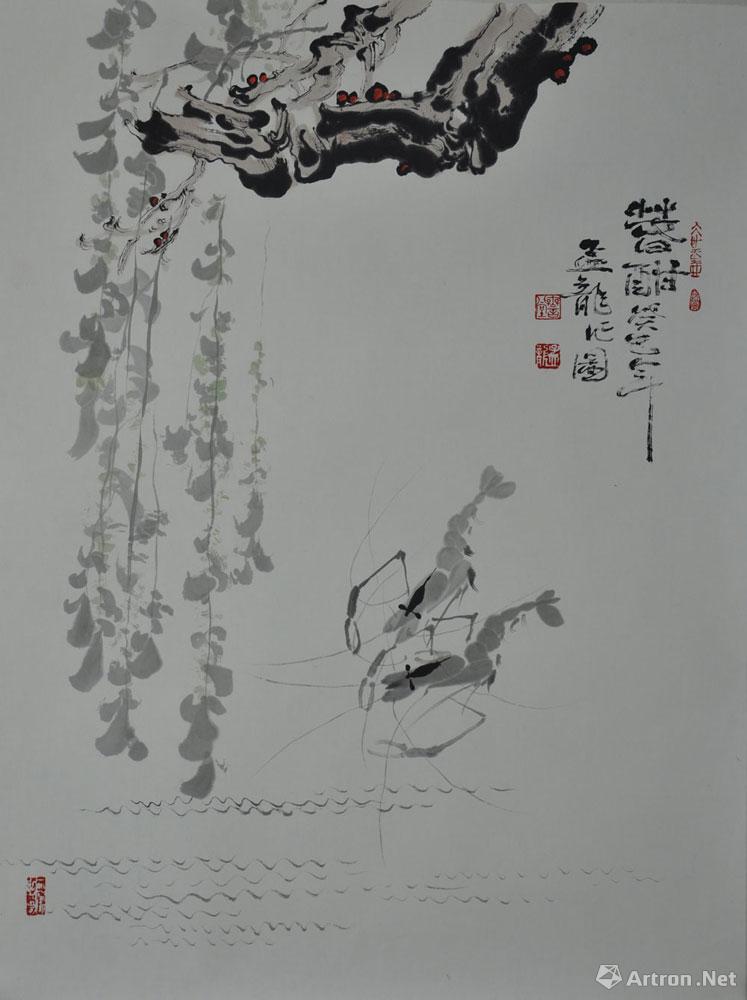 萅酣癸巳年
孟龍作圖
Artron.Net